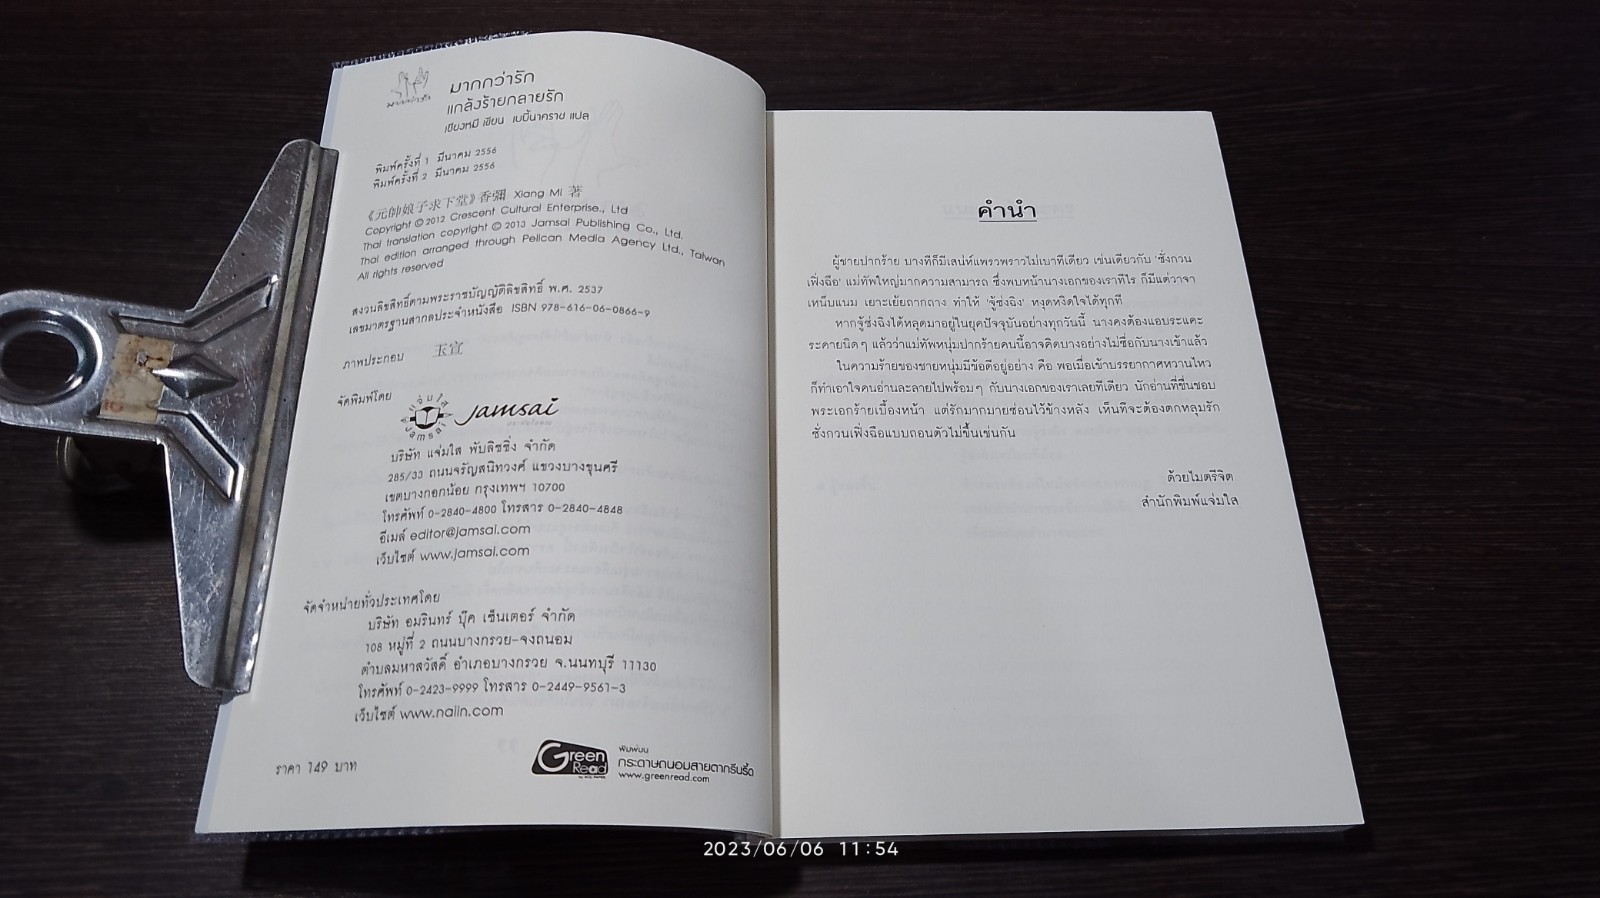 มากกว่ารัก
มากกว่ารัก
แกล้งร้ายกลายรัก
เซียงหมี เขียน เบบี้นาคราช แปล
พิมพ์ครั้งที่ 1 มีนาคม 2556
พิมพ์ครั้งที่ 2 มีนาคม 2556
《元帥娘子求下堂》香彌 Xiang Mi 著
Copyright © 2012 Crescent Cultural Enterprise., Ltd
Thai translation copyright © 2013 Jamsai Publishing Co., Ltd.
Thai edition arranged through Pelican Media Agency Ltd., Taiwan
All rights reserved
สงวนลิขสิทธิ์ตามพระราชบัญญัติลิขสิทธิ์ พ.ศ. 2537
เลขมาตรฐานสากลประจำหนังสือ ISBN 978-616-06-0866-9
ภาพประกอบ 玉宣
จัดพิมพ์โดย
แจ่มใส
Jamsai
Jamsai
บริษัท แจ่มใส พับลิชชิ่ง จำกัด
285/33 ถนนจรัญสนิทวงศ์ แขวงบางขุนศรี
เขตบางกอกน้อย กรุงเทพฯ 10700
โทรศัพท์ 0-2840-4800 โทรสาร 0-2840-4848
อีเมล์ editor@jamsai.com
เว็บไซต์ www.jamsai.com
จัดจำหน่ายทั่วประเทศโดย
บริษัท อมรินทร์ บุ๊ค เซ็นเตอร์ จำกัด
108 หมู่ที่ 2 ถนนบางกรวย-จงถนอม
ตำบลมหาสวัสดิ์ อำเภอบางกรวย จ.นนทบุรี 11130
โทรศัพท์ 0-2423-9999 โทรสาร 0-2449-9561-3
เว็บไซต์ www.naiin.com
ราคา 149 บาท
Green Read
พิมพ์บน
กระดาษถนอมสายตากรีนรี้ด
www.greenread.com
คำนำ
ผู้ชายปากร้าย บางทีก็มีเสน่ห์แพรวพราวไม่เบาทีเดียว เช่นเดียวกับ 'ซั่งกวน
เฟิ่งฉือ' แม่ทัพใหญ่มากความสามารถ ซึ่งพบหน้านางเอกของเราทีไร ก็มีแต่วาจา
เหน็บแนม เยาะเย้ยถากถาง ทำให้ 'จู้ซ่งฉิง' หงุดหงิดใจได้ทุกที
หากจู้ซ่งฉิงได้หลุดมาอยู่ในยุคปัจจุบันอย่างทุกวันนี้ นางคงต้องแอบระแคะ
ระคายนิดๆ แล้วว่าแม่ทัพหนุ่มปากร้ายคนนี้อาจคิดบางอย่างไม่ซื่อกับนางเข้าแล้ว
ในความร้ายของชายหนุ่มมีข้อดีอยู่อย่าง คือ พอเมื่อเข้าบรรยากาศหวานไหว
ก็ทำเอาใจคนอ่านละลายไปพร้อมๆ กับนางเอกของเราเลยทีเดียว นักอ่านที่ชื่นชอบ
พระเอกร้ายเบื้องหน้า แต่รักมากมายซ่อนไว้ข้างหลัง เห็นทีจะต้องตกหลุมรัก
ซั่งกวนเฟิ่งฉือแบบถอนตัวไม่ขึ้นเช่นกัน
ด้วยไมตรีจิต
สำนักพิมพ์แจ่มใส
2023/06/06 11:54